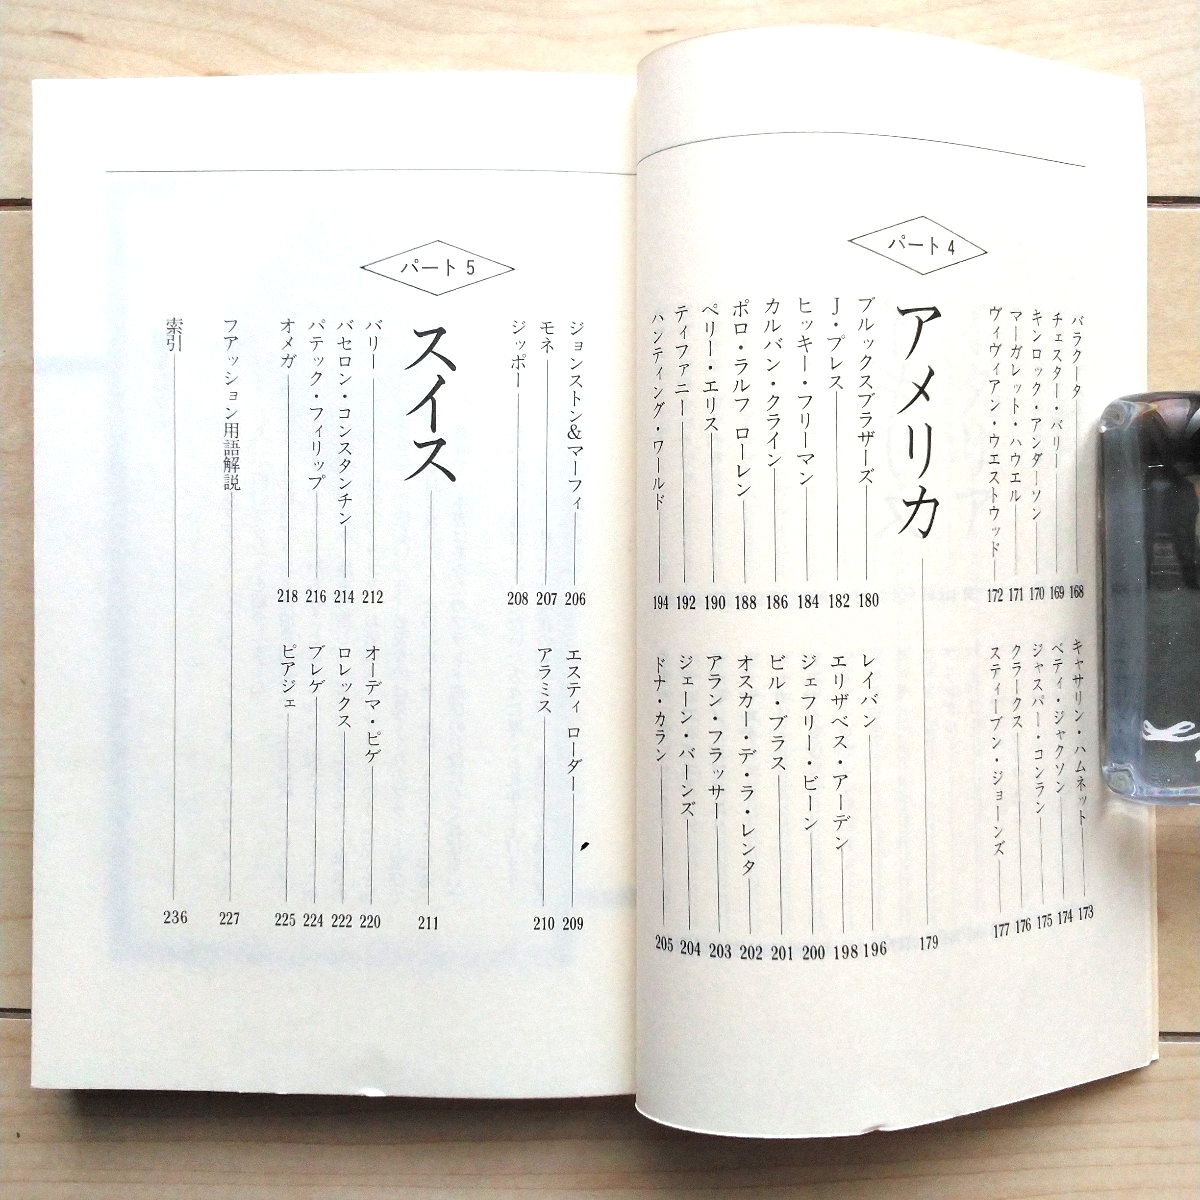 バラクータ 168
チェスター・バリー 169
キンロック・アンダーソン 170
マーガレット・ハウエル 171
ヴィヴィアン・ウエストウッド 172
キャサリン・ハムネット 173
ベティ・ジャクソン 174
ジャスパー・コンラン 175
クラークス 176
スティーブン・ジョーンズ 177
パート4
アメリカ 179
ブルックスブラザーズ 180
J・プレス 182
ヒッキー・フリーマン 184
カルバン・クライン 186
ポロ・ラルフ ローレン 188
ペリー・エリス 190
ティファニー 192
ハンティング・ワールド 194
レイバン 196
エリザベス・アーデン 198
ジェフリー・ビーン 200
ビル・ブラス 201
オスカー・デ・ラ・レンタ 202
アラン・フラッサー 203
ジェーン・バーンズ 204
ドナ・カラン 205
ジョンストン&マーフィ 206
モネ 207
ジッポー 208
エスティ ローダー 209
アラミス 210
パート5
スイス 211
バリー 212
バセロン・コンスタンチン 214
パテック・フィリップ 216
オメガ 218
オーデマ・ピゲ 220
ロレックス 222
ブレゲ 224
ピアジェ 225
ファッション用語解説 227
索引 236